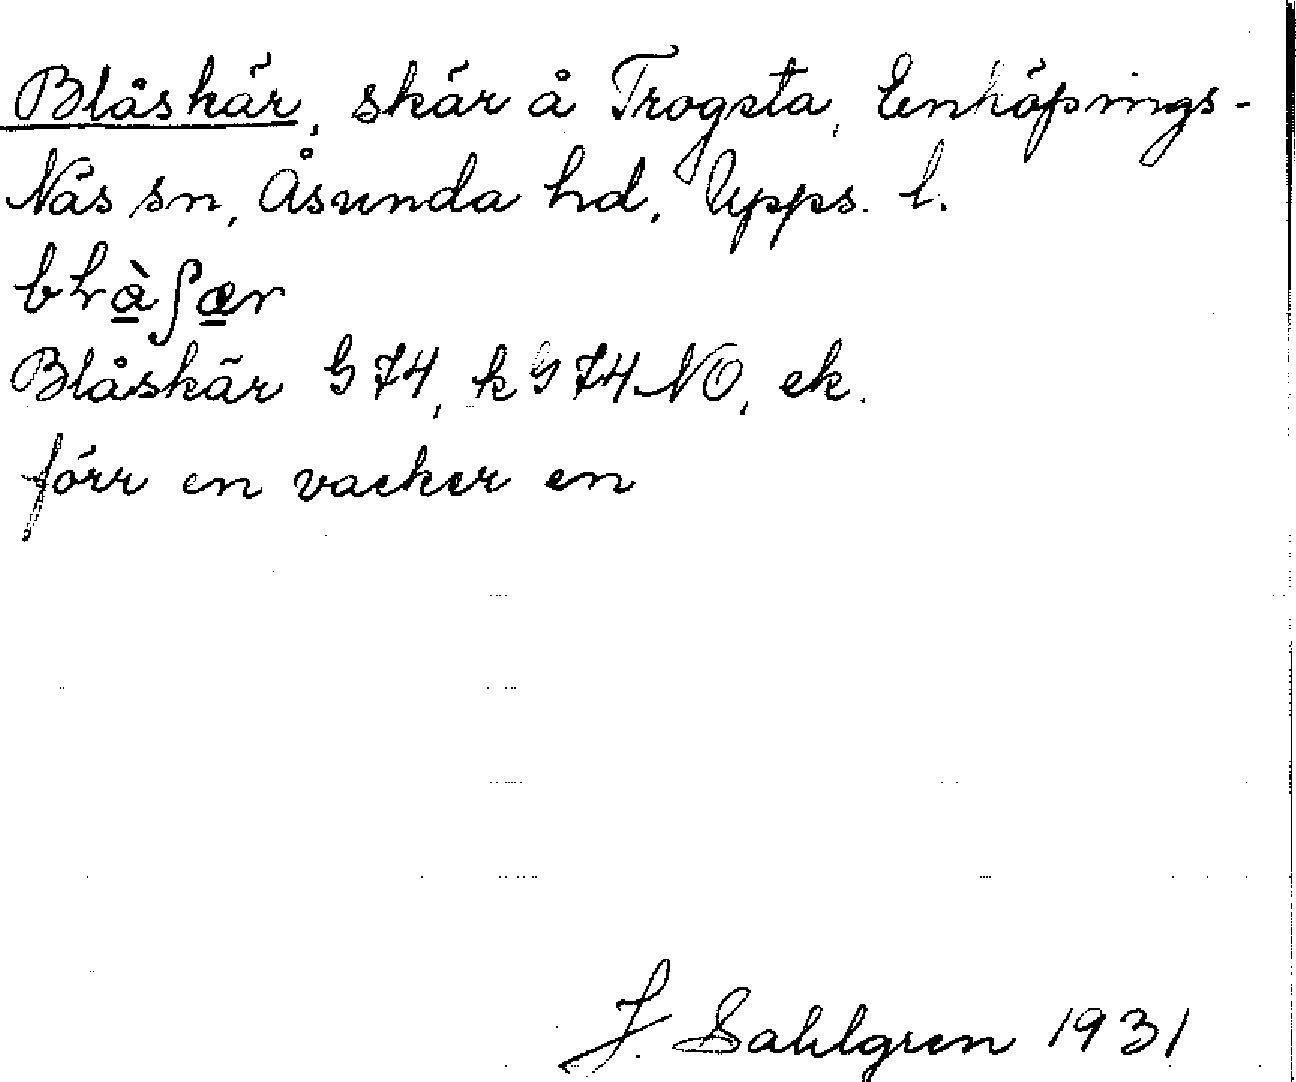 Blåskär, skär å Trogsta, Enköpings-
Näs sn, Åsunda hd, Upps. l.
Blåskär G 74, k G 74 NO, ek.
förr en vacker en
J. Sahlgren 1931